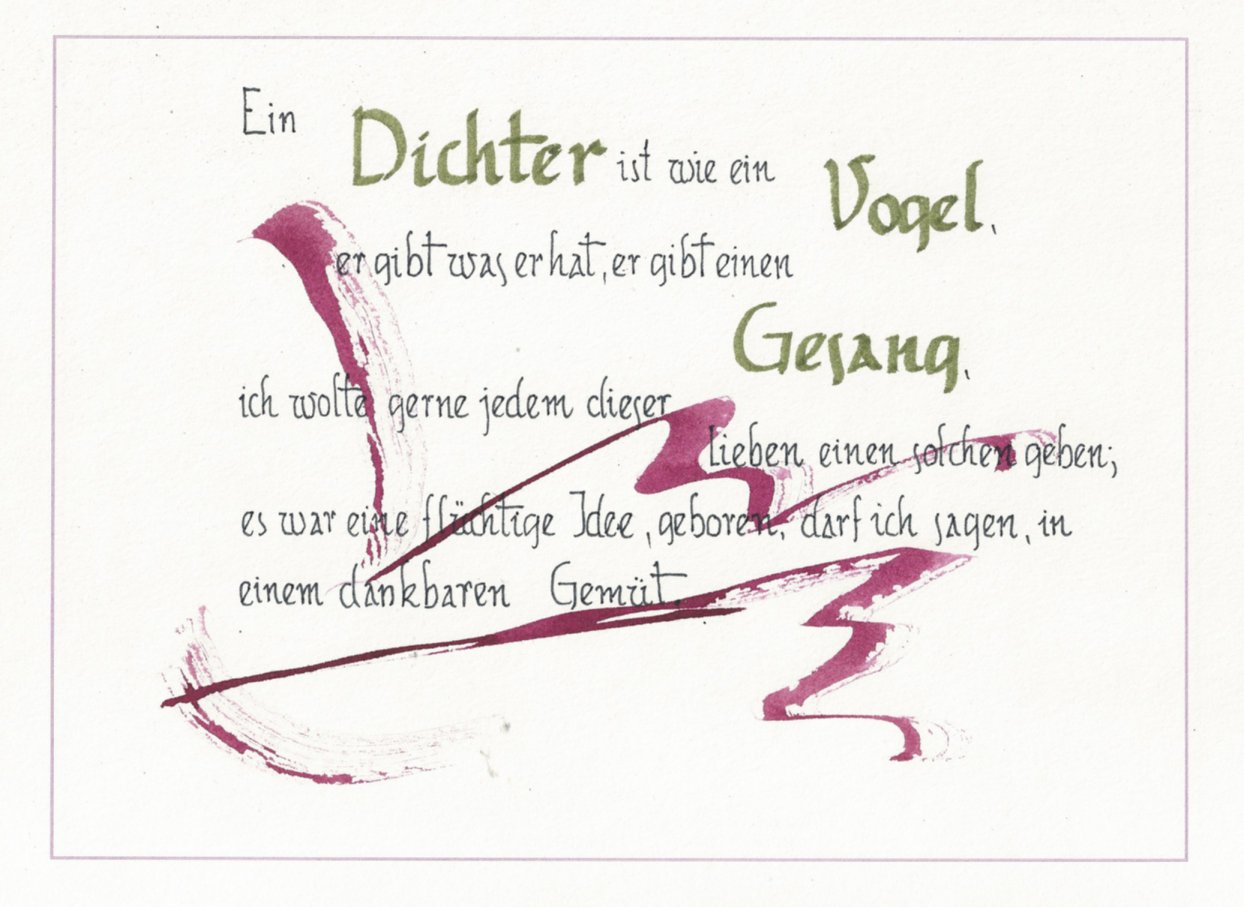 Ein Dichter ist wie ein Vogel,
er gibt was er hat, er gibt einen
Gesang,
ich wollte gerne jedem dieser
lieben einen solchen geben;
es war eine flüchtige Idee, geboren, darf ich sagen, in
einem dankbaren Gemüt.